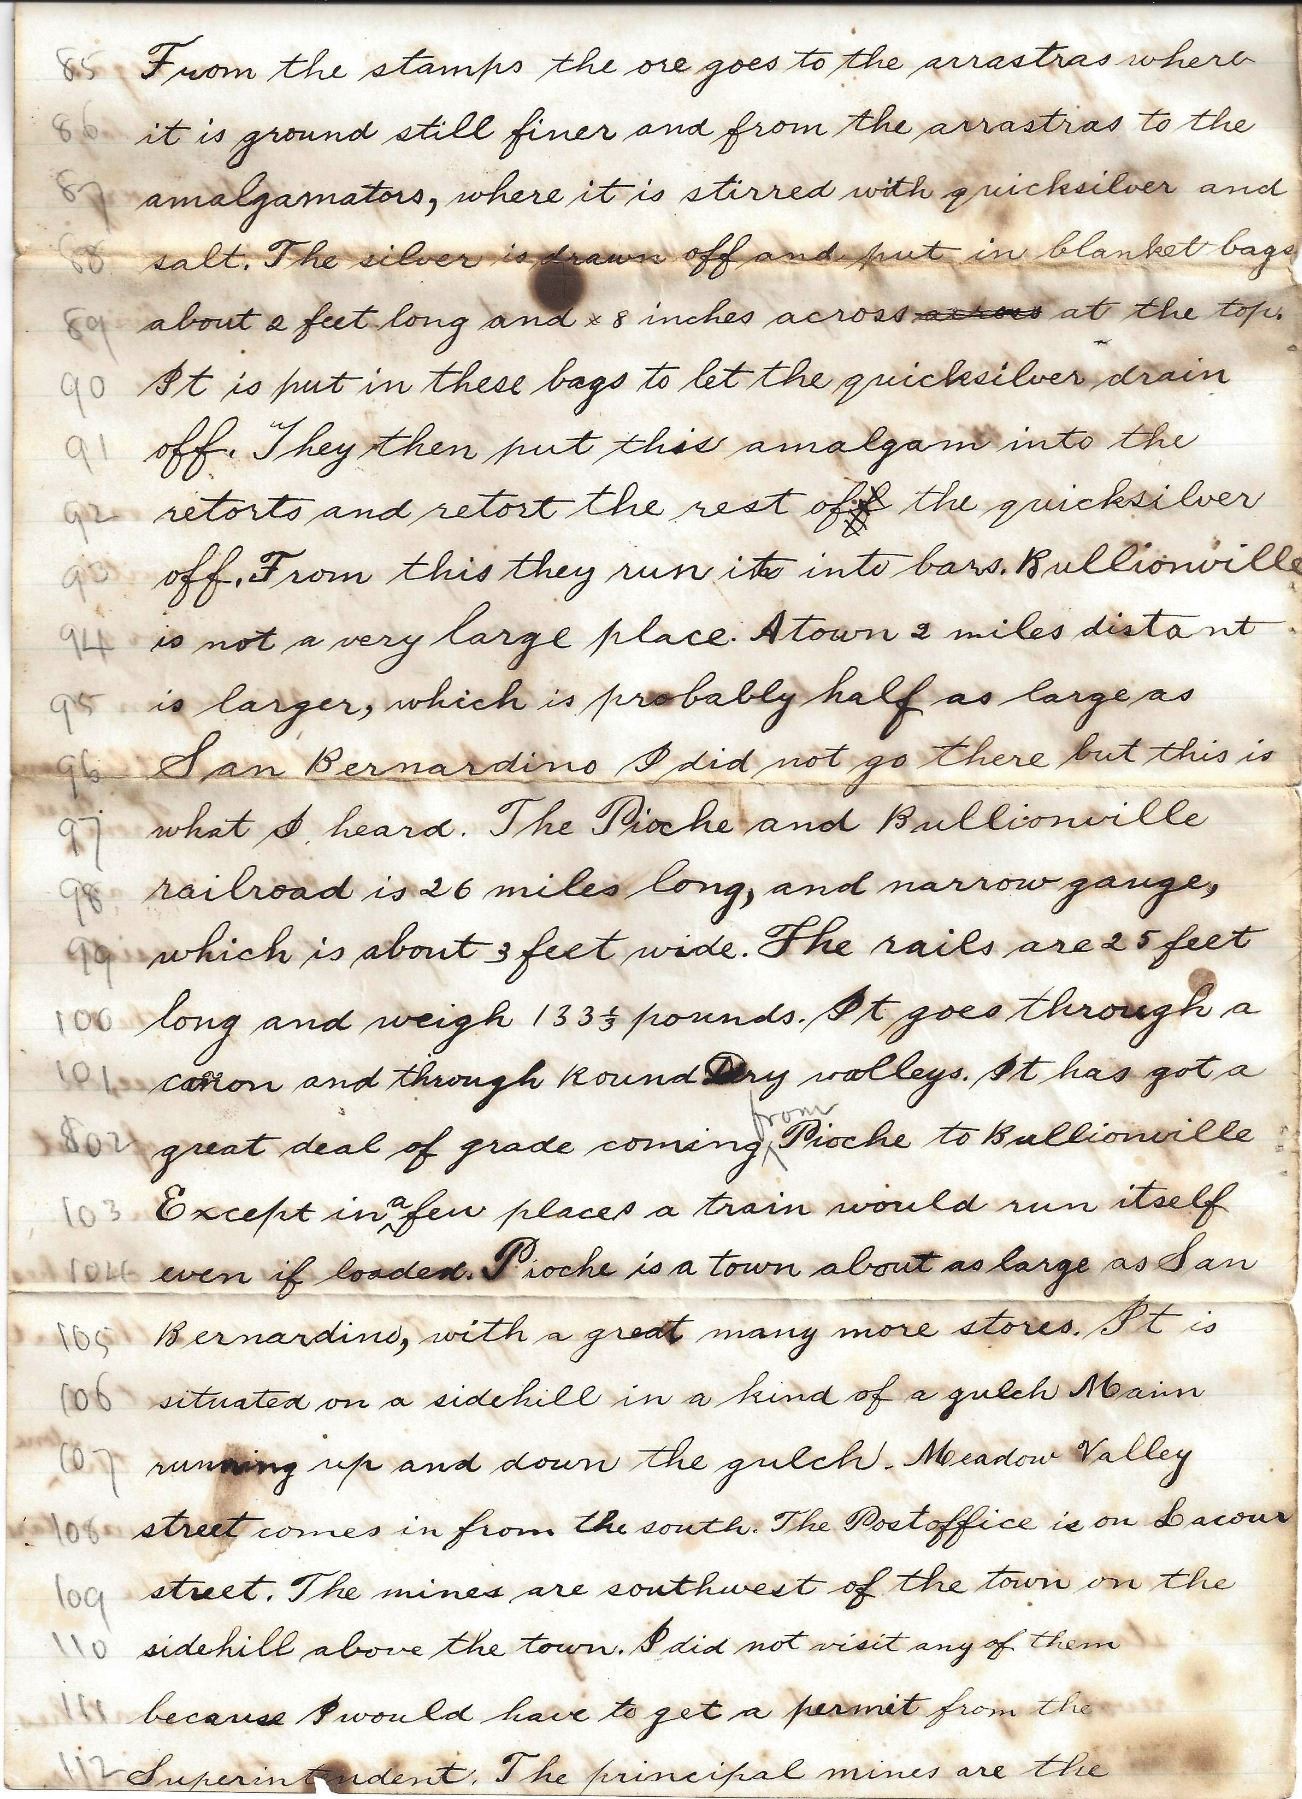 85 From the stamps the ore goes to the arrastras where
86 it is ground still finer and from the arrastras to the
87 amalgamators, where it is stirred with quicksilver and
88 salt. The silver is drawn off and put in blanket bags
89 about 2 feet long and x 8 inches across across at the top.
90 It is put in these bags to let the quicksilver drain
91 off. They then put this amalgam into the
92 retorts and retort the rest of the quicksilver
93 off. From this they run it into bars. Bullionville
94 is not a very large place. A town 2 miles distant
95 is larger, which is probably half as large as
96 San Bernardino I did not go there but this is
97 what I heard. The Pioche and Bullionville
98 railroad is 26 miles long, and narrow gauge,
99 which is about 3 feet wide. The rails are 25 feet
100 long and weigh 133⅓ pounds. It goes through a
101 cañon and through Round Dry valleys. It has got a
102 great deal of grade coming from Pioche to Bullionville
103 Except in a few places a train would run itself
104 even if loaded. Pioche is a town about as large as San
105 Bernardino, with a great many more stores. It is
106 situated on a sidehill in a kind of a gulch Main
107 running up and down the gulch. Meadow Valley
108 street comes in from the south. The Postoffice is on Lacour
109 street. The mines are southwest of the town on the
110 sidehill above the town. I did not visit any of them
111 because I would have to get a permit from the
112 Superintendent. The principal mines are the